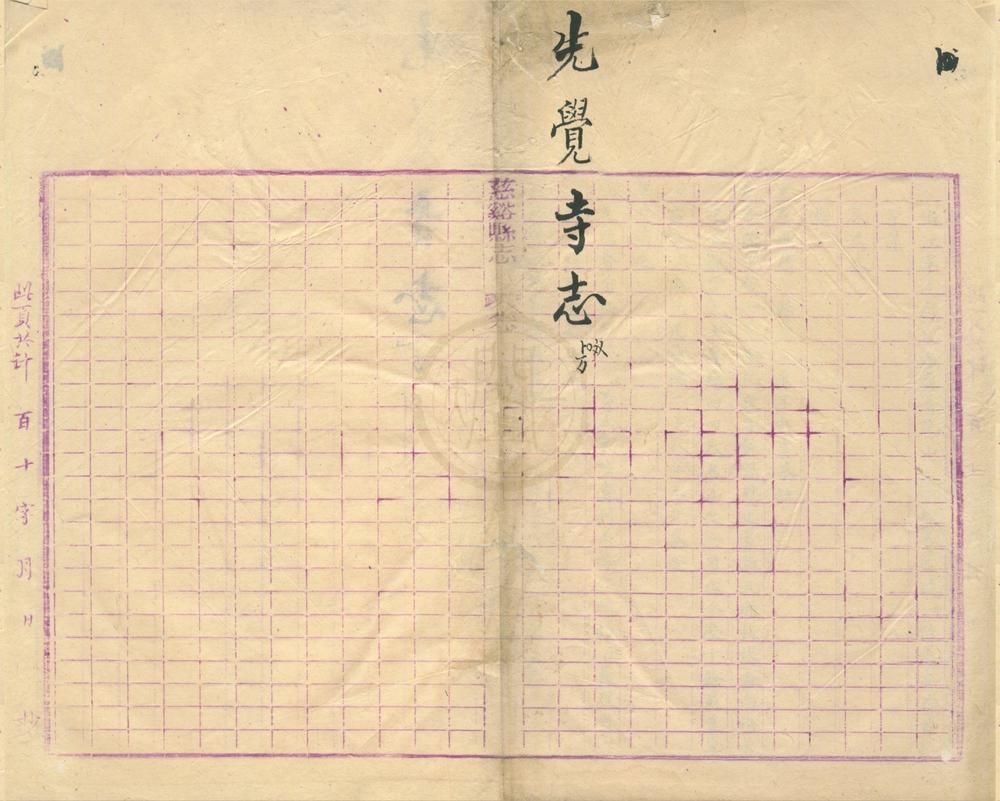 先覺寺志
慈谿縣志
此頁共計　百　十　字　月　日　抄